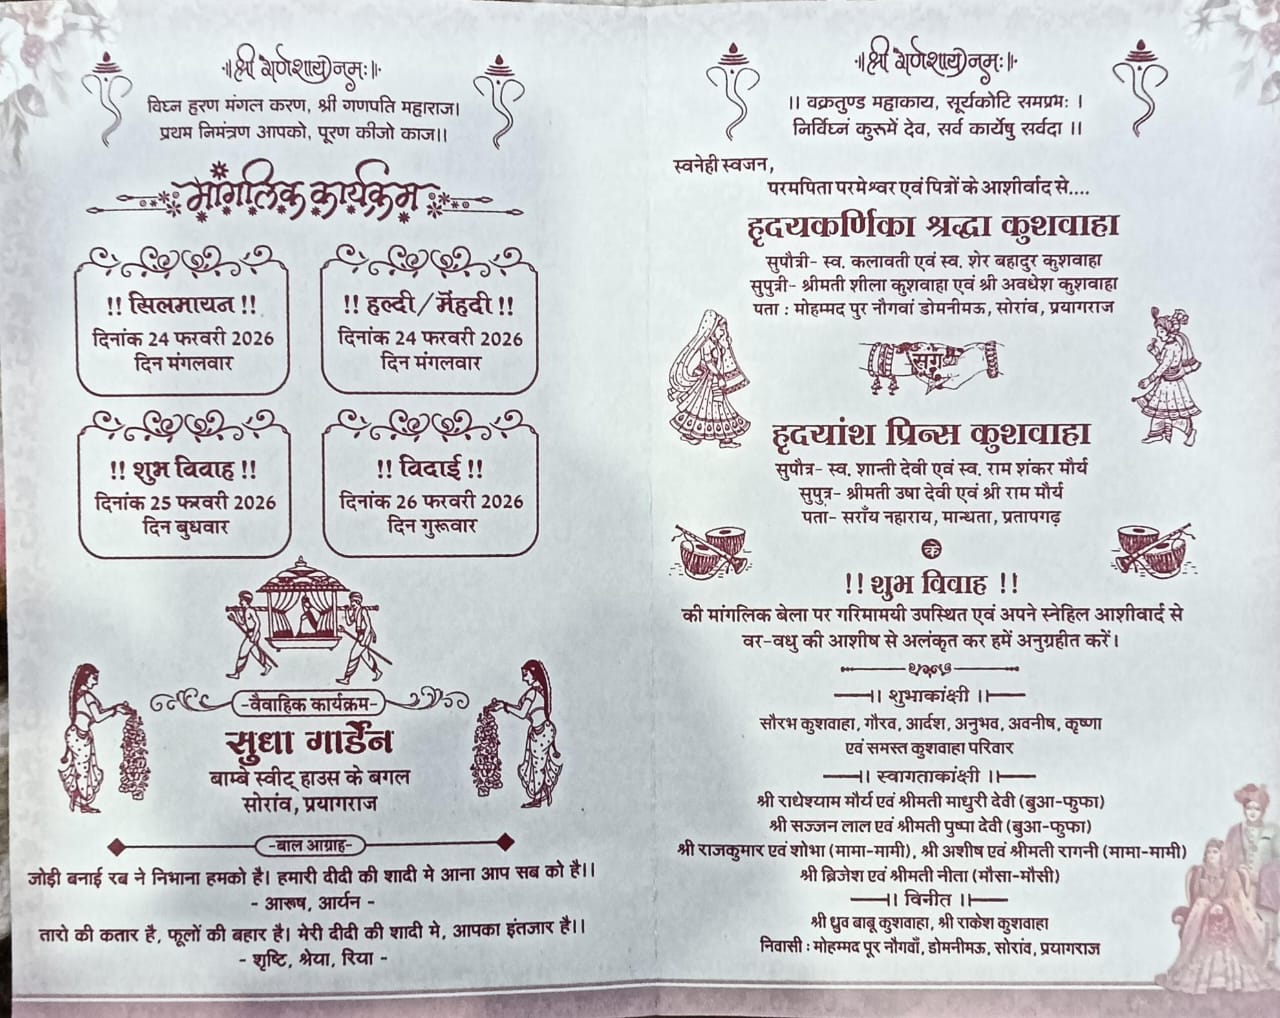 ।।श्री गणेशाय नमः।।
विघ्न हरण मंगल करण, श्री गणपति महाराज।
प्रथम निमंत्रण आपको, पूरण कीजो काज।।
मांगलिक कार्यक्रम
!! सिलमायन !!
दिनांक 24 फरवरी 2026
दिन मंगलवार
!! हल्दी/मेंहदी !!
दिनांक 24 फरवरी 2026
दिन मंगलवार
!! शुभ विवाह !!
दिनांक 25 फरवरी 2026
दिन बुधवार
!! विदाई !!
दिनांक 26 फरवरी 2026
दिन गुरूवार
-वैवाहिक कार्यक्रम-
सुधा गार्डेन
बाम्बे स्वीट् हाउस के बगल
सोरांव, प्रयागराज
-बाल आग्रह-
जोड़ी बनाई रब ने निभाना हमको है। हमारी दीदी की शादी मे आना आप सब को है।।
- आरूष, आर्यन -
तारो की कतार है, फूलों की बहार है। मेरी दीदी की शादी मे, आपका इंतजार है।।
- शृष्टि, श्रेया, रिया -
।।श्री गणेशाय नमः।।
।। वक्रतुण्ड महाकाय, सूर्यकोटि समप्रभः ।
निर्विघ्नं कुरूमें देव, सर्व कार्येषु सर्वदा ।।
स्वनेही स्वजन,
परमपिता परमेश्वर एवं पित्रों के आशीर्वाद से....
हृदयकर्णिका श्रद्धा कुशवाहा
सुपौत्री- स्व. कलावती एवं स्व. शेर बहादुर कुशवाहा
सुपुत्री- श्रीमती शीला कुशवाहा एवं श्री अवधेश कुशवाहा
पता : मोहम्मद पुर नौगवां डोमनीमऊ, सोरांव, प्रयागराज
संग
हृदयांश प्रिन्स कुशवाहा
सुपौत्र- स्व. शान्ती देवी एवं स्व. राम शंकर मौर्य
सुपुत्र- श्रीमती उषा देवी एवं श्री राम मौर्य
पता- सराँय नहाराय, मान्धता, प्रतापगढ़
के
!! शुभ विवाह !!
की मांगलिक बेला पर गरिमामयी उपस्थित एवं अपने स्नेहिल आशीवार्द से
वर-वधु की आशीष से अलंकृत कर हमें अनुग्रहीत करें।
।। शुभाकांक्षी ।।
सौरभ कुशवाहा, गौरव, आर्दश, अनुभव, अवनीष, कृष्णा
एवं समस्त कुशवाहा परिवार
।। स्वागताकांक्षी ।।
श्री राधेश्याम मौर्य एवं श्रीमती माधुरी देवी (बुआ-फुफा)
श्री सज्जन लाल एवं श्रीमती पुष्पा देवी (बुआ-फुफा)
श्री राजकुमार एवं शोभा (मामा-मामी), श्री अशीष एवं श्रीमती रागनी (मामा-मामी)
श्री ब्रिजेश एवं श्रीमती नीता (मौसा-मौसी)
।। विनीत ।।
श्री ध्रुव बाबू कुशवाहा, श्री राकेश कुशवाहा
निवासी : मोहम्मद पूर नौगवाँ, डोमनीमऊ, सोरांव, प्रयागराज